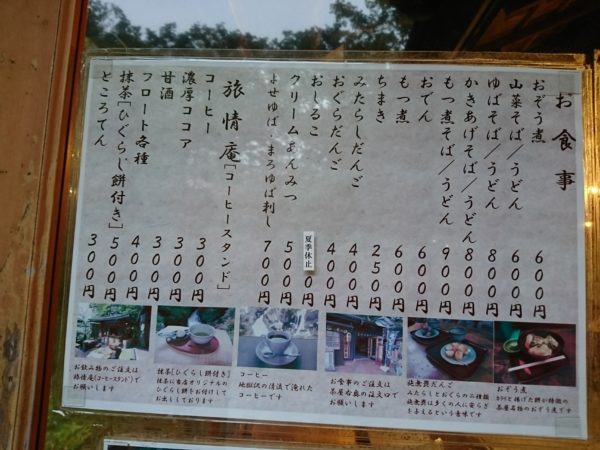 お食事
おぞう煮 600円
山菜そば／うどん 600円
ゆばそば／うどん 800円
かきあげそば／うどん 800円
もつ煮そば／うどん 900円
おでん 600円
もつ煮 600円
ちまき 250円
みたらしだんご 400円
おぐらだんご 400円
おしるこ 夏季休止 0円
クリームあんみつ 500円
よせゆば・まろゆば刺し 700円
旅情庵［コーヒースタンド］
コーヒー 300円
濃厚ココア 300円
甘酒 300円
フロート各種 400円
抹茶［ひぐらし餅付き］ 500円
ところてん 300円
お飲み物のご注文は
旅情庵(コーヒースタンド)で
お願いします
抹茶(ひぐらし餅付き)
抹茶に当店オリジナルの
ひぐらし餅をお付けして
お出ししております
コーヒー
地獄沢の清流で淹れた
コーヒーです
お食事のご注文は
茶屋右廊の注文口で
お願いします
施無畏だんご
みたらしとおぐらの二種類
施無畏は多くの人に安らぎ
を与えるという意味です
おぞう煮
カラリと揚げた餅が特徴の
茶屋名物のおぞう煮です